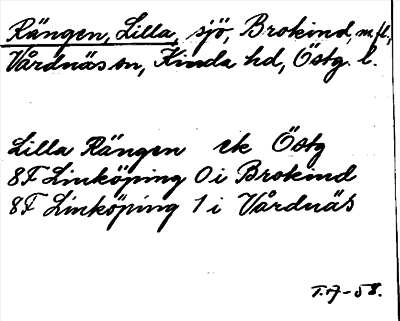 Rängen, Lilla, sjö, Brokind, m.fl.,
Vårdnäs sn, Kinda hd, Östg. l.
Lilla Rängen ek Östg
8F Linköping 0 i Brokind
8F Linköping 1 i Vårdnäs
T.A-58.